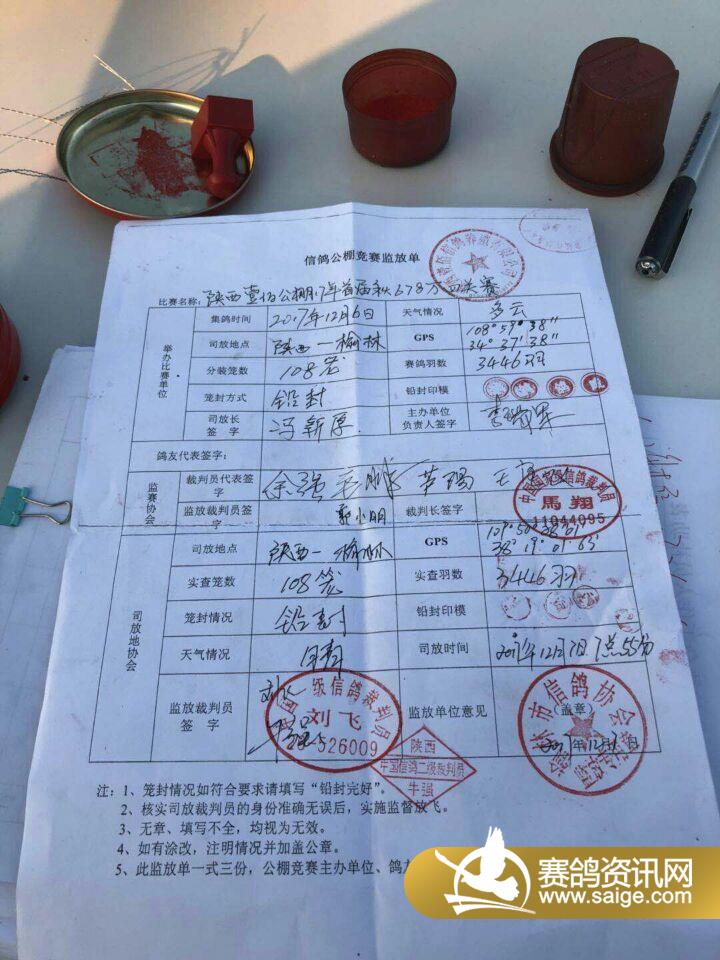 信鸽公棚竞赛监放单
比赛名称：陕西壹伯公棚17年首届秋678万 决赛
集鸽时间 2017年12月6日 天气情况 多云
举办比赛单位
司放地点 陕西—榆林 GPS 108°59′38″ 34°37′38″
分装笼数 108笼 赛鸽羽数 3446羽
笼封方式 铅封 铅封印模
司放长签字 冯新厚 主办单位负责人签字
鸽友代表签字：
监赛协会
裁判员代表签字 余强
监放裁判员签字 郭小朋 裁判长签字
中国 信鸽裁判员
馬翔
11044095
司放地协会
司放地点 陕西—榆林 GPS 109°50′38″61 38°19′01″63
实查笼数 108笼 实查羽数 3446羽
笼封情况 铅封 铅封印模
天气情况 晴 司放时间 2017年12月7日7点55分
监放裁判员签字 监放单位意见 （盖章）
国 级信鸽裁判员
刘飞
526009
陕西
中国信鸽二级裁判员
牛强
市信鸽协会
注：1、笼封情况如符合要求请填写“铅封完好”。
2、核实司放裁判员的身份准确无误后，实施监督放飞。
3、无章、填写不全，均视为无效。
4、如有涂改，注明情况并加盖公章。
5、此监放单一式三份，公棚竞赛主办单位、鸽
赛鸽资讯网
www.saige.com